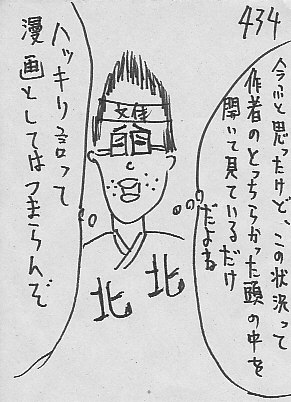 434
今ふと思ったけど、この状況って
作者のとっちらかった頭の中を
開いて見ているだけ
だよね
ハッキリ言って
漫画としてはつまらんぞ
北
北